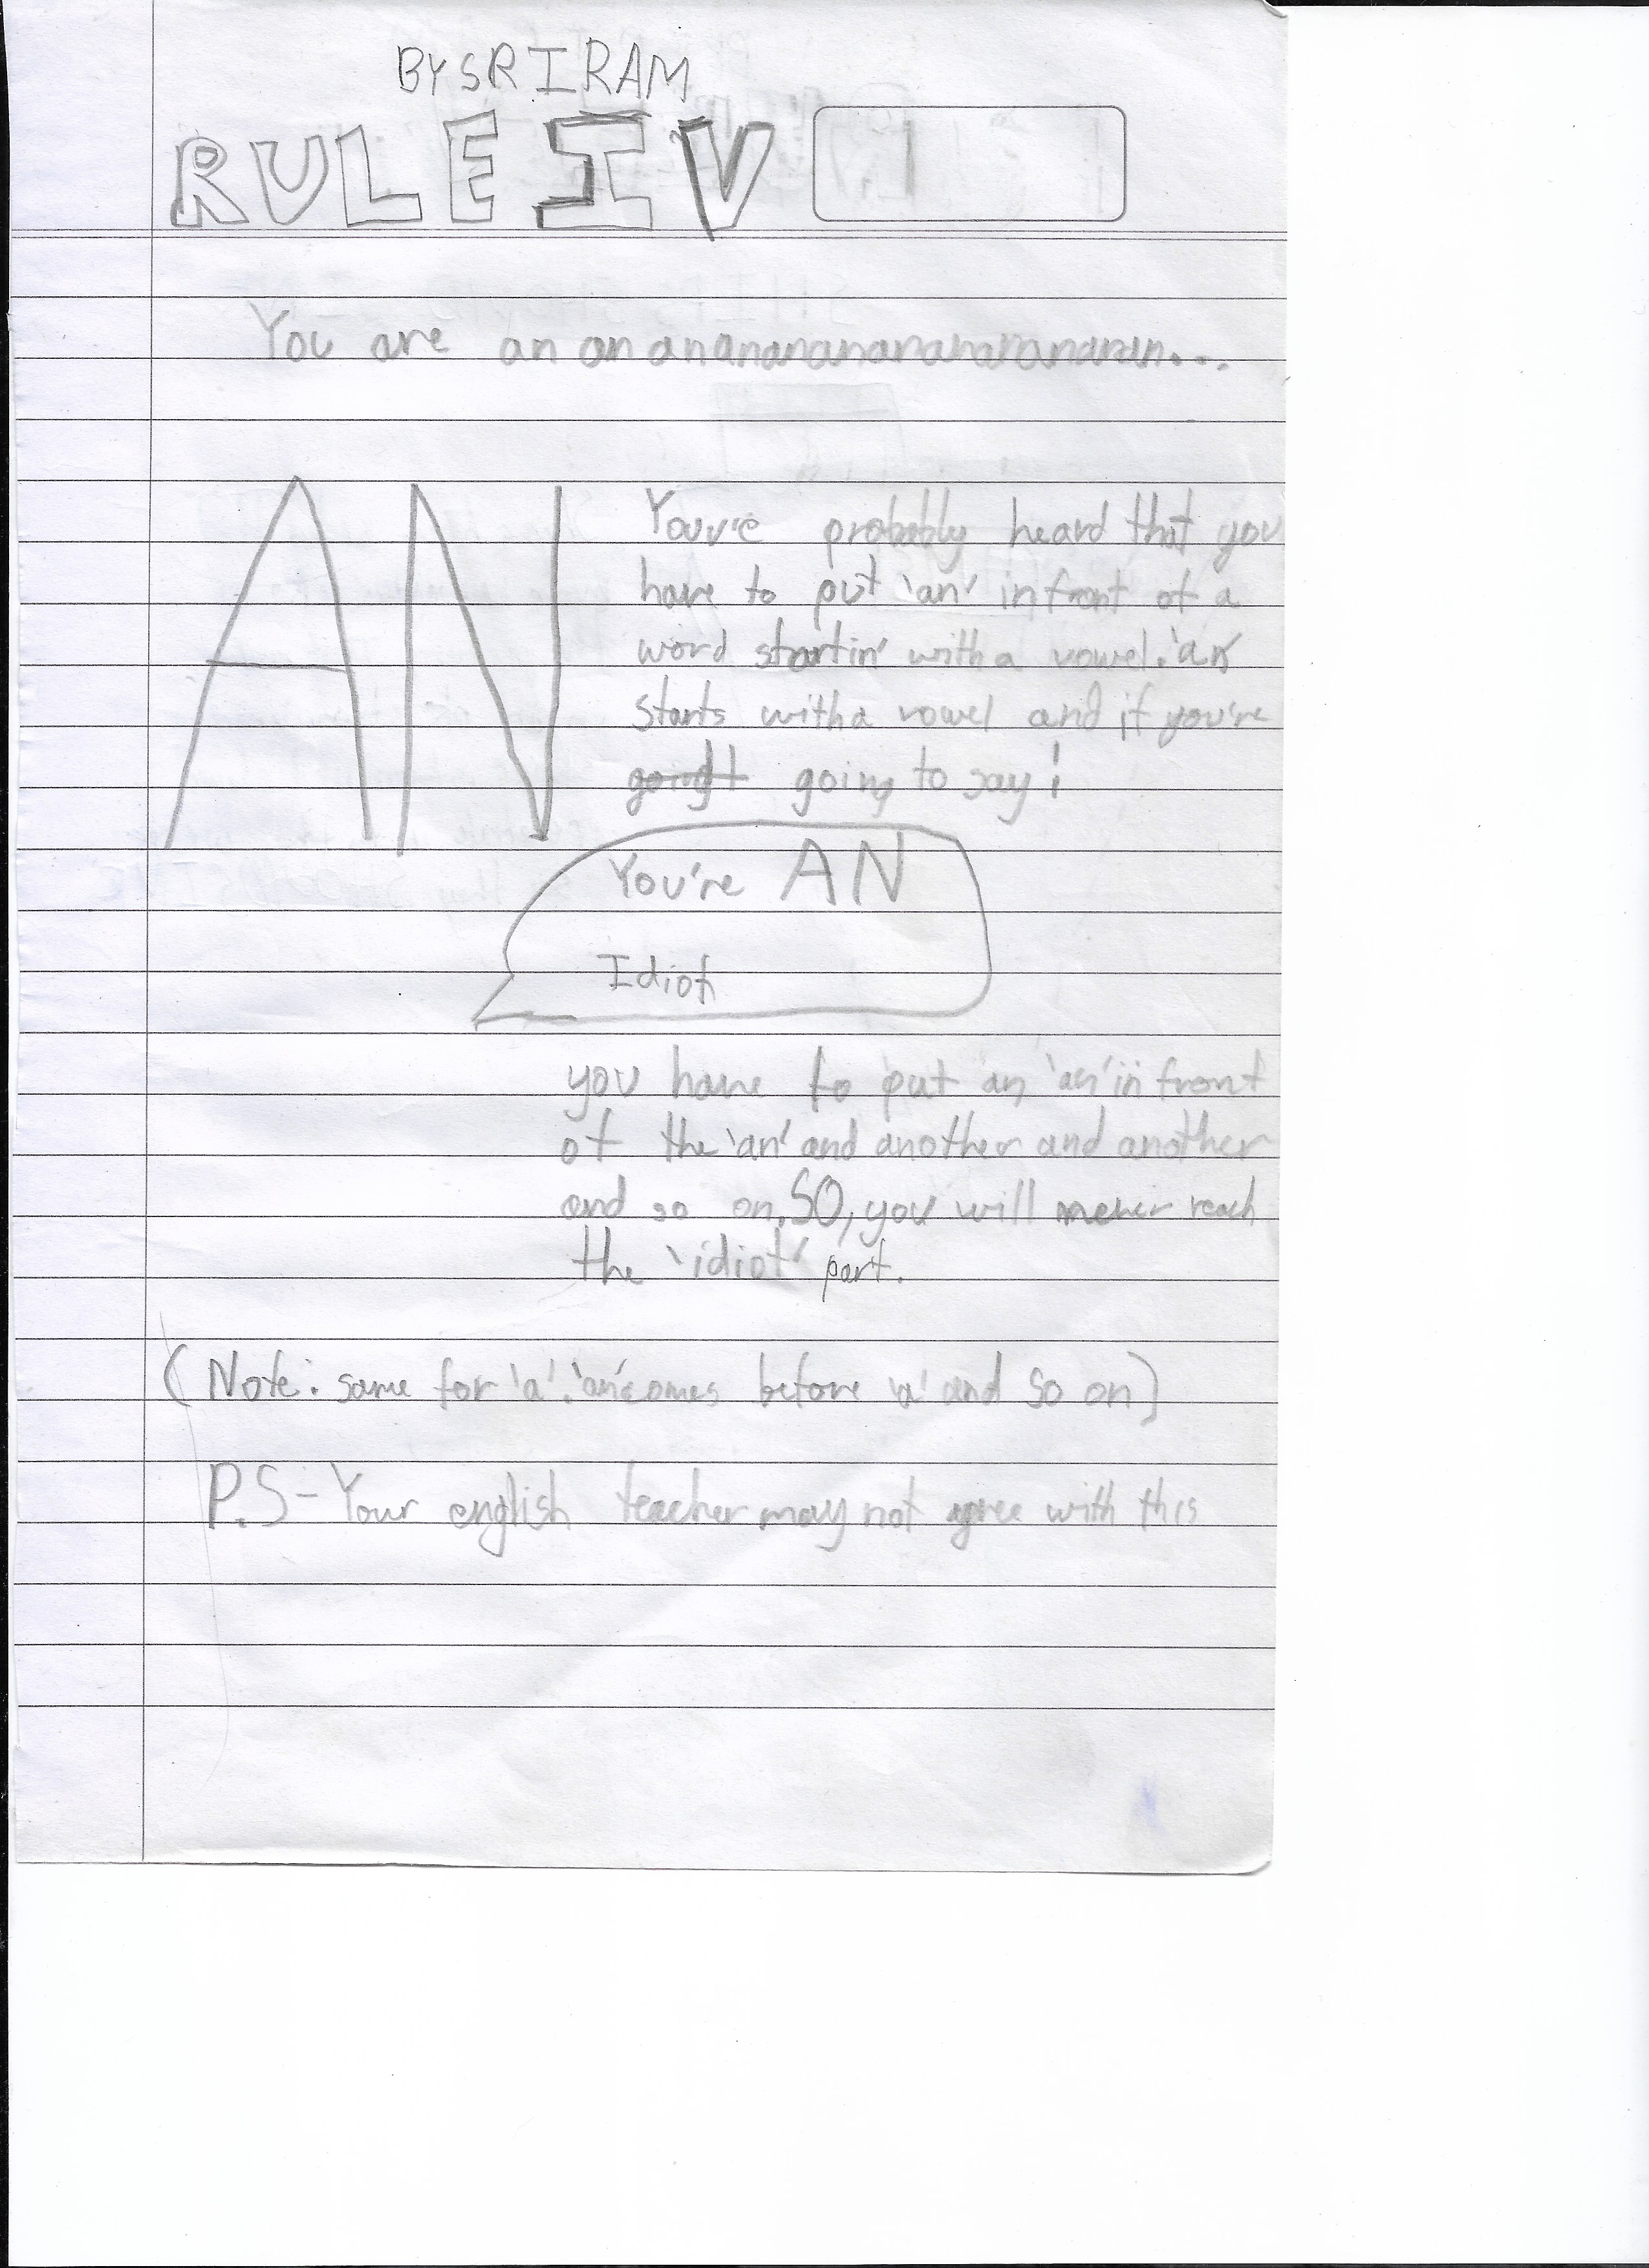 BY SRIRAM
RULE IV
You are an an anananananananananan...
AN
You've probably heard that you
have to put 'an' in front of a
word startin' with a vowel. 'an'
starts with a vowel and if you're
going to say:
You're AN
Idiot
you have to put an 'an' in front
of the 'an' and another and another
and so on. SO, you will never reach
the 'idiot' part.
(Note: same for 'a'. 'an' comes before 'a' and so on)
P.S - Your english teacher may not agree with this